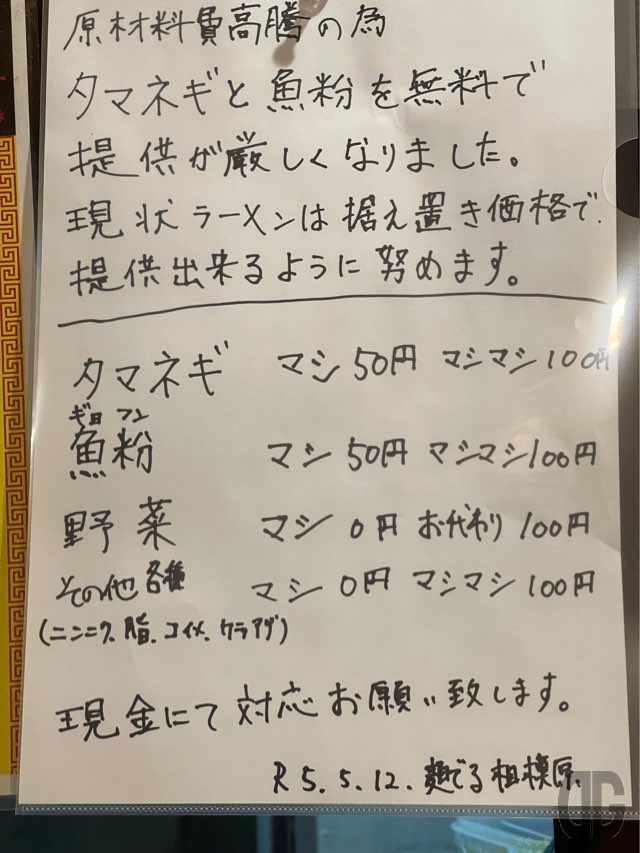 原材料費高騰の為
タマネギと魚粉を無料で
提供が厳しくなりました。
現状ラーメンは据え置き価格で
提供出来るように努めます。
タマネギ マシ 50円 マシマシ 100円
ギョフン
魚粉 マシ 50円 マシマシ 100円
野菜 マシ 0円 お代わり 100円
その他各種 マシ 0円 マシマシ 100円
(ニンニク、脂、コイメ、ウラアゲ)
現金にて対応お願い致します。
R5.5.12. 麺でる相模原